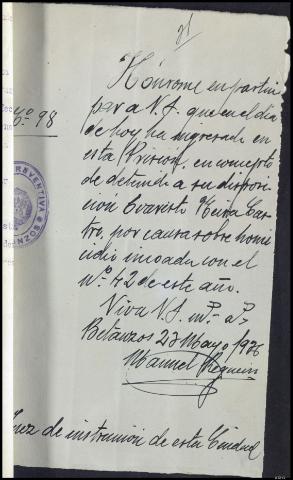 21
Hónrome en partici
par a V.S. que en el día
de hoy ha ingresado en
esta Prisión, en concepto
de detenido a su disposi
ción Evaristo Neira Cas
tro, por causa sobre homi
cidio incoada con el
nº 42 de este año.
Viva V.S. m.s a.s
Betanzos 23 Mayo 1936
Manuel
Nº 98
PREVENTIVA
Juez de instrucción de esta Ciudad